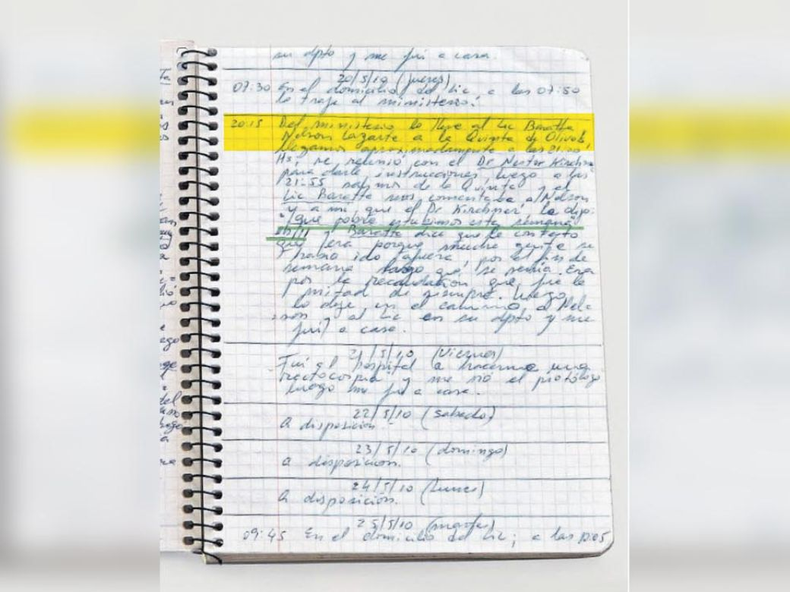 su dpto y me fui a casa.
20/5/10 (jueves)
07:30 En el domicilio del Lic, a las 07:50
lo traje al ministerio.
20:15 Del ministerio lo lleve al Lic Baratta
Nelson Lazarte a la Quinta de Olivos
llegamos aproximadamente a las 21:10
Hs, se reunió con el Dr Nestor Kirchner
para darle instrucciones, luego a las
21:55 salimos de la Quinta y el
Lic Baratta nos comentaba a Nelson
y a mi, que el Dr Kirchner le dijo:
"¡que pobre estubimos esta semana
y Baratta dice que le contesto
que era porque mucha gente se
habia ido afuera, por el fin de
semana largo que se venia. Era
por la recaudación que fue la
mitad de siempre. Luego
lo deje en el camino a Nel-
son y al Lic en su dpto y me
fui a casa.
21/5/10 (Viernes)
Fui al hospital a hacerme una
y me vió el
luego me fui a casa.
22/5/10 (sabado)
A disposición.
23/5/10 (domingo)
a disposición.
24/5/10 (lunes)
a disposición.
25/5/10 (martes)
09:45 En el domicilio del Lic; a las